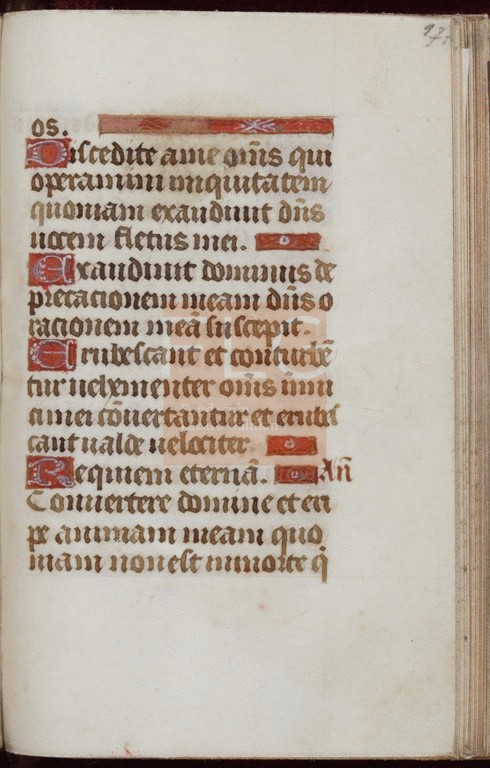 97
os.
Discedite a me om̄s qui
operamini iniquitatem
quoniam exaudiuit dn̄s
uocem fletus mei.
Exaudiuit dominus de
precationem meam dn̄s o
rationem meā suscepit.
Erubescant et conturbē
tur uehementer om̄s inimi
ci mei cōuertantur et erubes
cant ualde uelociter.
Requiem eternā. An̄
Conuertere domine et eri
pe animam meam quo
niam non est in morte q̄